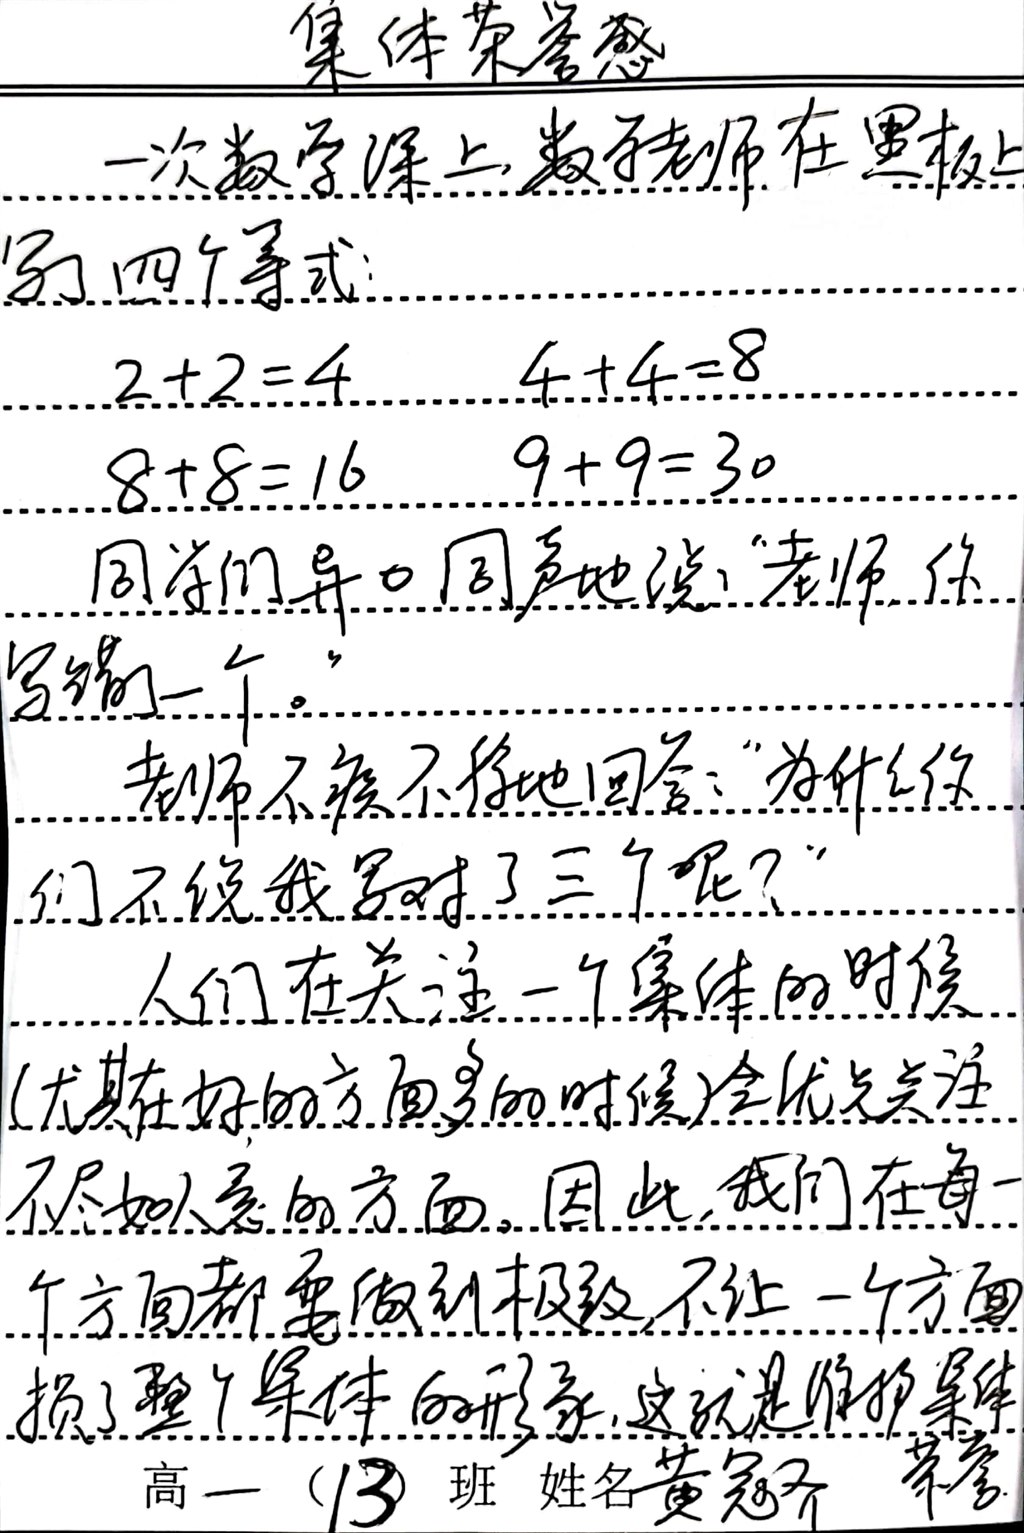 集体荣誉感
一次数学课上,数学老师在黑板上
写了四个等式:
2+2=4 4+4=8
8+8=16 9+9=30
同学们异口同声地说:“老师,你
写错了一个。”
老师不疾不徐地回答:“为什么你
们不说我写对了三个呢?”
人们在关注一个集体的时候
(尤其在好的方面多的时候)会优先关注
不尽如人意的方面。因此,我们在每一
个方面都要做到极致,不让一个方面
损了整个集体的形象,这就是维护集体
荣誉.
高一(13)班 姓名 黄冠齐